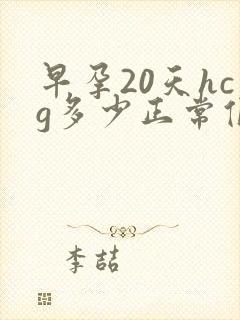 早孕20天hc
g多少正常
李喆